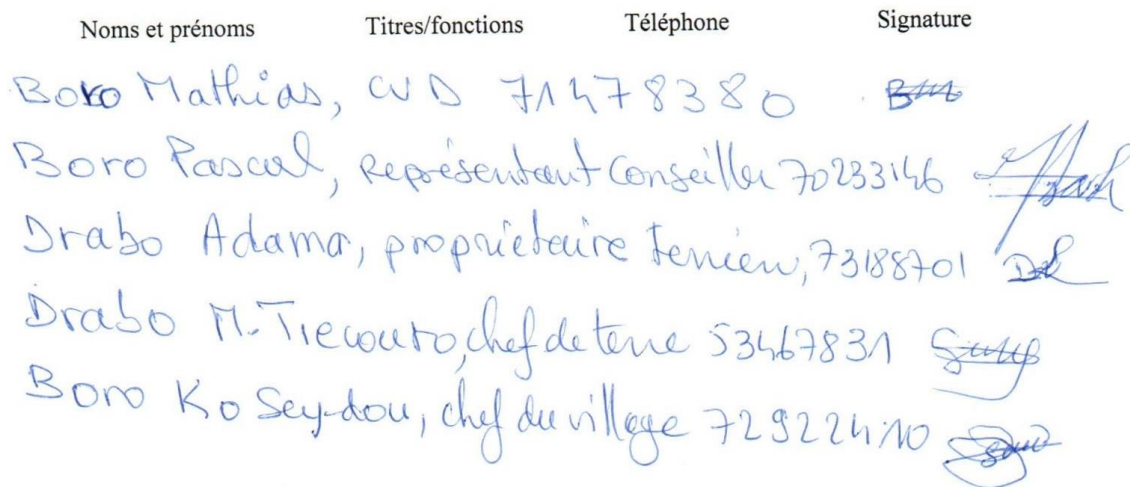 Noms et prénoms Titres/fonctions Téléphone Signature
Boro Mathias, CVD 71478380
Boro Pascal, Représentant Conseiller 70233146
Drabo Adama, propriétaire terrien, 73188701
Drabo M. Tiecouro, chef de terre 53467831
Boro Ko Seydou, chef du village 72922410